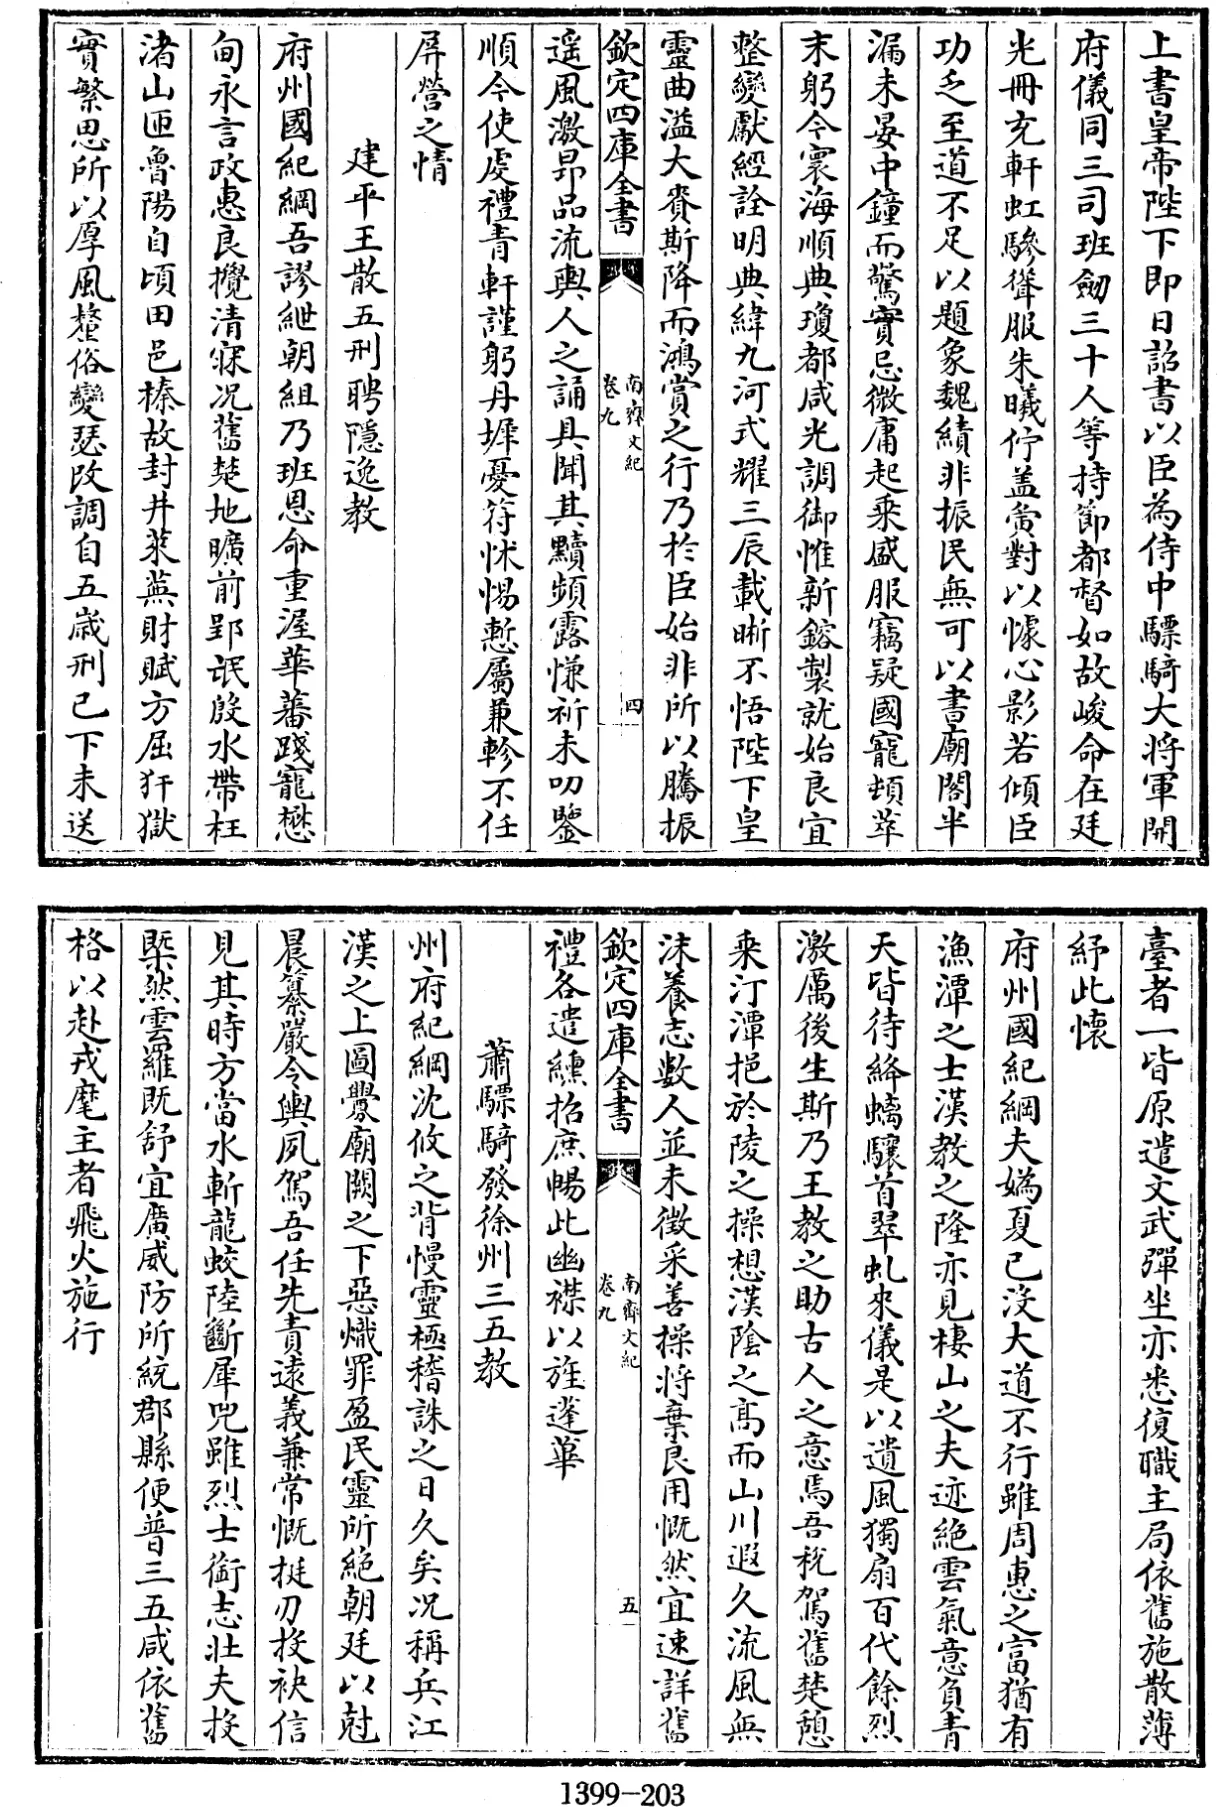 上書皇帝陛下即日詔書以臣為侍中驃騎大將軍開
府儀同三司班劒三十人等持節都督如故峻命在廷
光冊充軒虹驂聳服朱曦佇盖黄對以懅心影若傾臣
功乏至道不足以題象魏績非振民無可以書廟閣半
漏未晏中鐘而驚實忌微庸起乘盛服竊疑國寵頓萃
末躬今寰海順典瓊都咸光調御惟新鎔製就始良宜
整變獻經詮明典緯九河式耀三辰載晣不悟陛下皇
靈曲溢大賚斯降而鴻賞之行乃於臣始非所以騰振
欽定四庫全書
南齊文紀
卷九
四
遥風激昻品流輿人之誦具聞其黷頻露慊祈未叨鑒
順今使處禮青軒謹躬丹墀憂符怵惕慙屬兼軫不任
屏營之情
建平王散五刑聘隱逸教
府州國紀綱吾謬紲朝組乃班恩命重渥華蕃踐寵懋
甸永言政惠良攪清寐况舊楚地曠前郢氓殷水帶枉
渚山匝魯陽自頃田邑榛故封井萊蕪財賦方屈犴獄
實繁思所以厚風釐俗變瑟改調自五歲刑已下未送
臺者一皆原遣文武彈坐亦悉復職主局依舊施散薄
紓此懷
府州國紀綱夫媯夏已没大道不行雖周惠之富猶有
漁潭之士漢教之隆亦見棲山之夫迹絶雲氣意負青
天皆待絳螭驤首翠虬來儀是以遺風獨扇百代餘烈
激厲後生斯乃王教之助古人之意焉吾税駕舊楚憩
乘汀潭挹於陵之操想漢陰之髙而山川遐久流風無
沫養志數人並未徵采善操將棄良用慨然宜速詳舊
欽定四庫全書
南齊文紀
卷九
五
禮各遣纁招庶暢此幽襟以旌蓬蓽
蕭驃騎發徐州三五教
州府紀綱沈攸之背慢靈極稽誅之日久矣况稱兵江
漢之上圖釁廟闕之下惡熾罪盈民靈所絶朝廷以尅
晨纂嚴令輿夙駕吾任先責遠義兼常慨挺刃投袂信
見其時方當水斬龍蛟陸斷犀兕雖烈士銜志壯夫投
槩然雲羅既舒宜廣威防所統郡縣便普三五咸依舊
格以赴戎麾主者飛火施行
1399-203